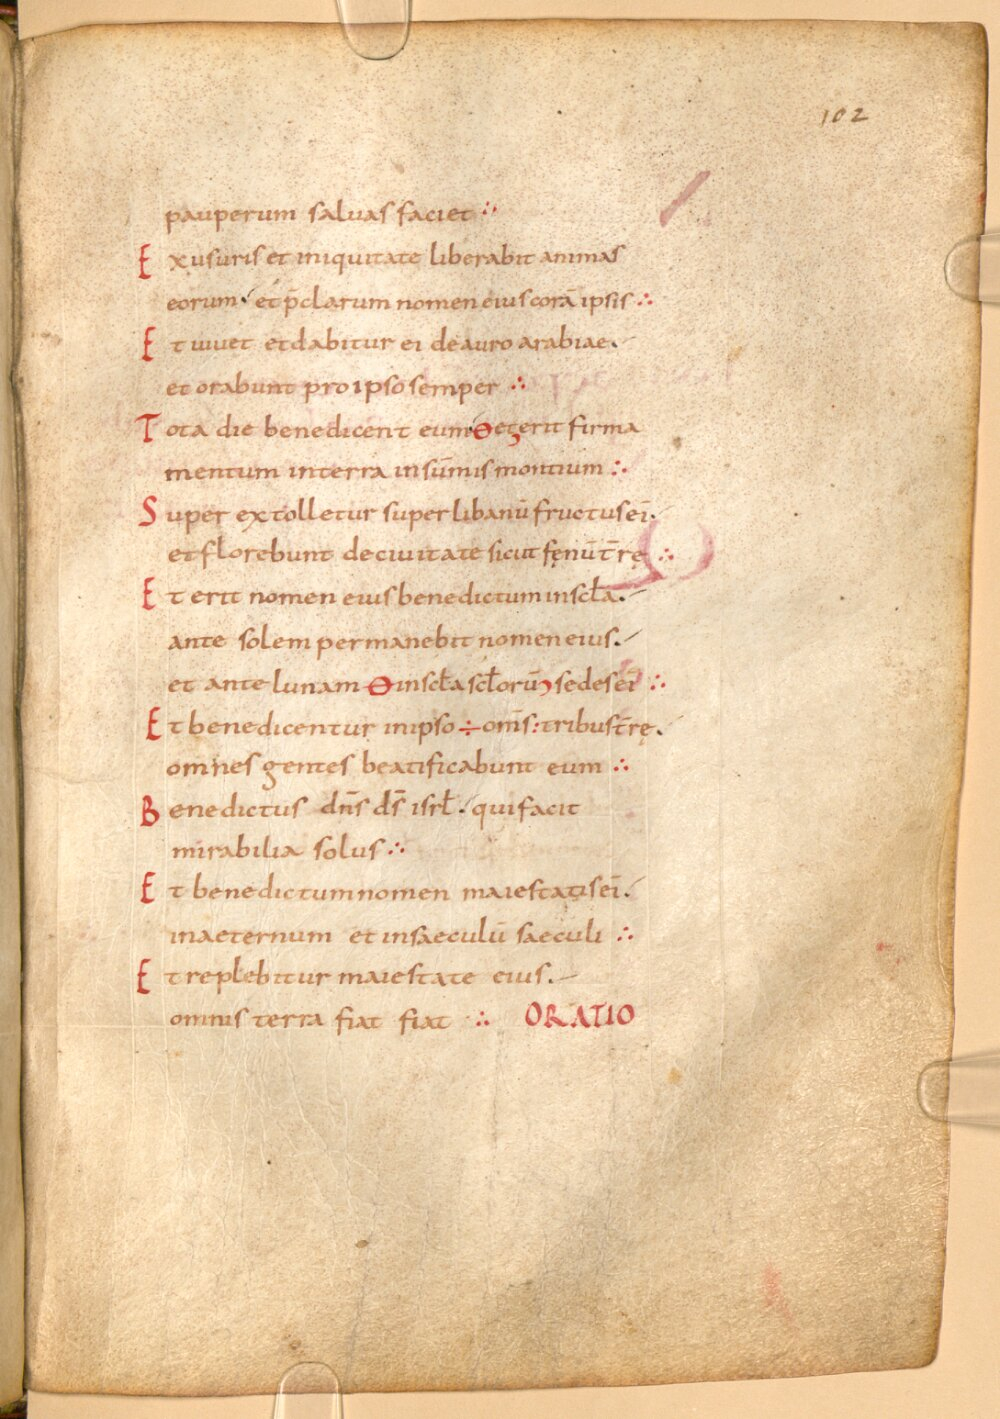 102
pauperum saluas faciet ∴
Ex usuris et iniquitate liberabit animas
eorum ⁊ et p̄clarum nomen eius corā ipsis ∴
Et uiuet et dabitur ei de auro arabiae.
et orabunt pro ipso semper ∴
Tota die benedicent eum ꝋ et erit firma
mentum in terra in sūmis montium ∴
Super extolletur super libanū fructus ei̅.
et florebunt de ciuitate sicut fęnū t̄rę ∴
Et erit nomen eius benedictum in scl̄a.
ante solem permanebit nomen eius.
et ante lunam ꝋ in scl̄a scl̄orū sedes ei̅ ∴
Et benedicentur in ipso ÷ om̄s: tribus t̄rę.
omnes gentes beatificabunt eum ∴
Benedictus dn̄s ds̄ isrl̄. qui facit
mirabilia solus ∴
Et benedictum nomen maiestatis ei̅.
in aeternum et in saeculū saeculi ∴
Et replebitur maiestate eius.
omnis terra fiat fiat ∴ ORATIO